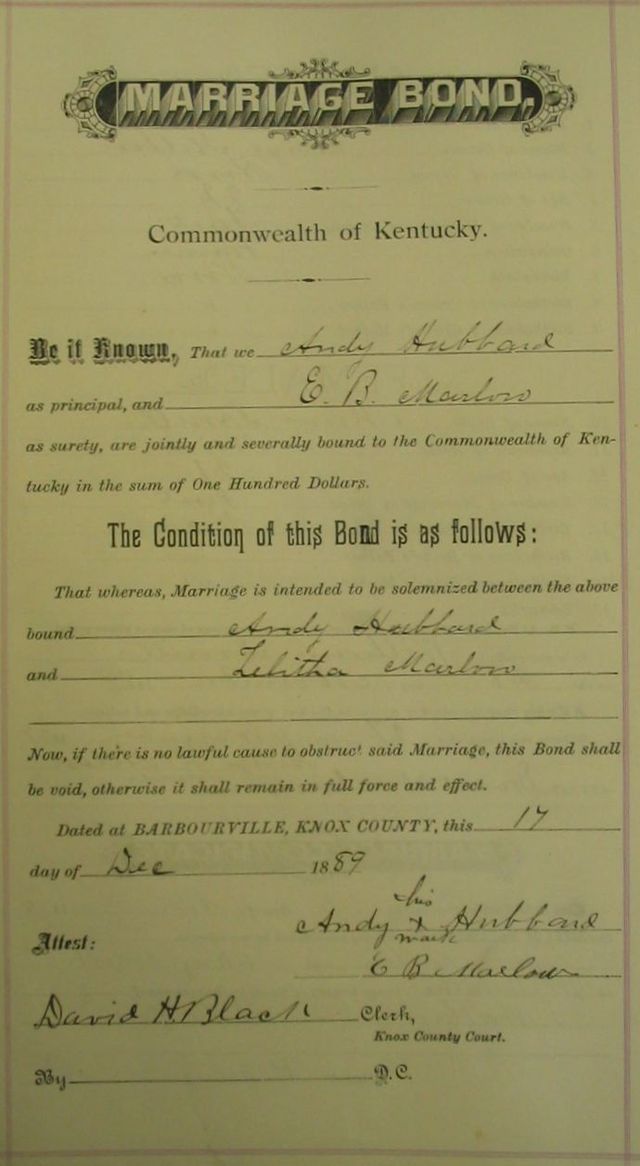 MARRIAGE BOND.
Commonwealth of Kentucky.
Be it Known, That we Andy Hubbard
as principal, and E. B. Marlow
as surety, are jointly and severally bound to the Commonwealth of Ken-
tucky in the sum of One Hundred Dollars.
The Condition of this Bond is as follows:
That whereas, Marriage is intended to be solemnized between the above
bound Andy Hubbard
and Tebitha Marlow
Now, if there is no lawful cause to obstruct said Marriage, this Bond shall
be void, otherwise it shall remain in full force and effect.
Dated at BARBOURVILLE, KNOX COUNTY, this 17
day of Dec 1889
his
Andy x Hubbard
mark
Attest:
E B Marlow
David H Black Clerk,
Knox County Court.
By D.C.